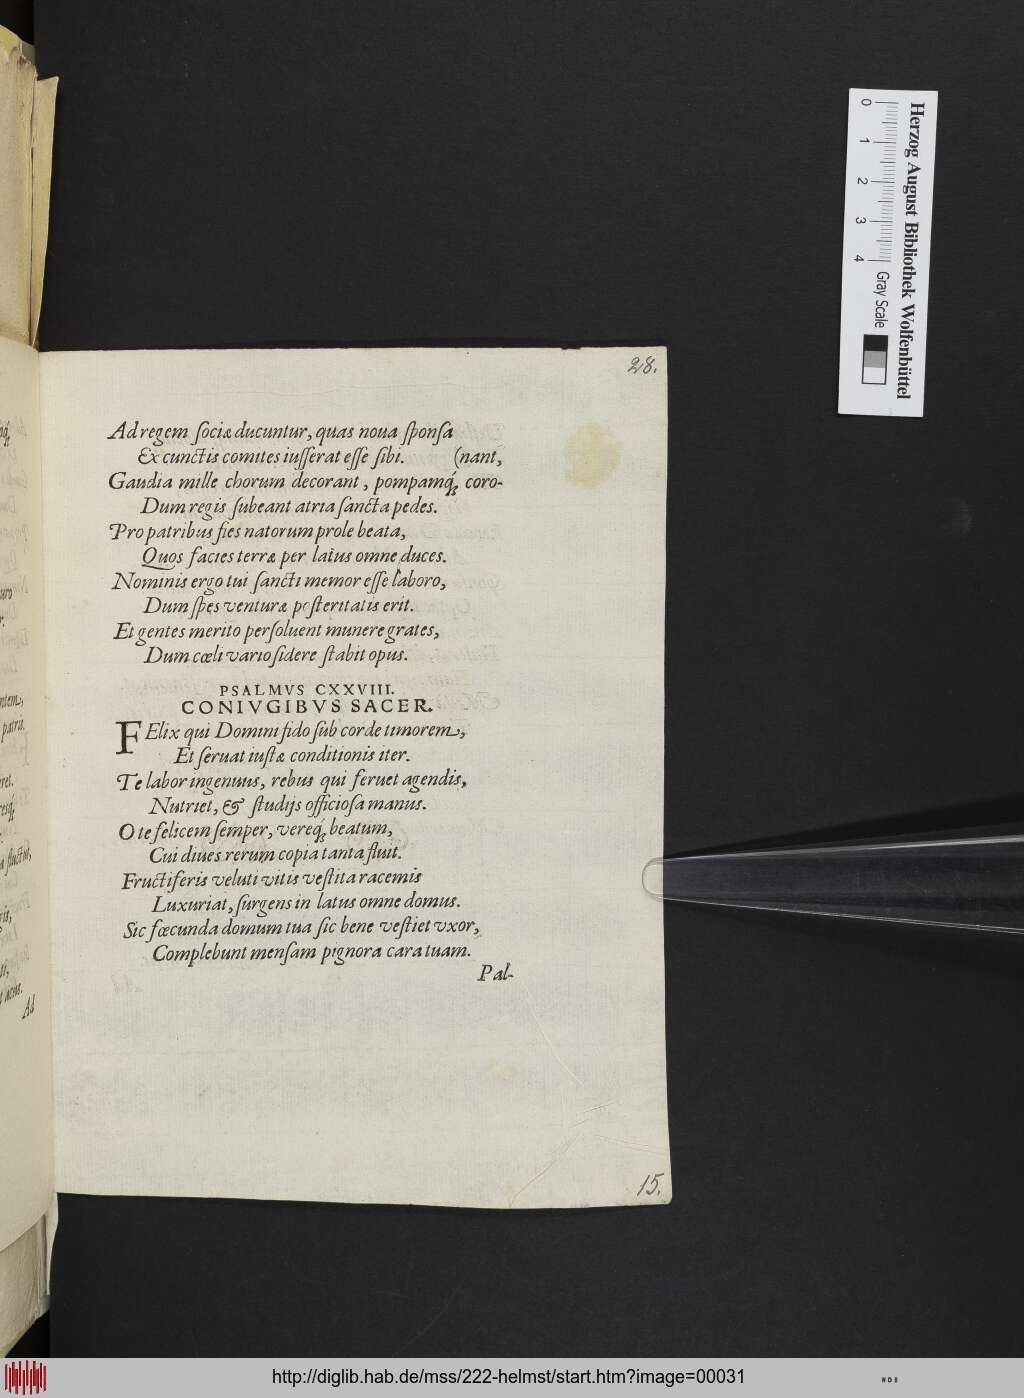 28.
Ad regem sociæ ducuntur, quas noua sponsa
Ex cunctis comites iusserat esse sibi. (nant,
Gaudia mille chorum decorant, pompamq́; coro-
Dum regis subeant atria sancta pedes.
Pro patribus fies natorum prole beata,
Quos facies terræ per latus omne duces.
Nominis ergo tui sancti memor esse laboro,
Dum spes venturæ posteritatis erit.
Et gentes merito persoluent munere grates,
Dum cœli vario sidere stabit opus.
PSALMVS CXXVIII.
CONIVGIBVS SACER.
FElix qui Domini fido sub corde timorem,
Et seruat iustæ conditionis iter.
Te labor ingenuus, rebus qui feruet agendis,
Nutriet, & studijs officiosa manus.
O te felicem semper, vereq́; beatum,
Cui diues rerum copia tanta fluit.
Fructiferis veluti vitis vestita racemis
Luxuriat, surgens in latus omne domus.
Sic fœcunda domum tua sic bene vestiet vxor,
Complebunt mensam pignora cara tuam.
Pal-
15.
ntem,
patris.
Ad
Herzog August Bibliothek Wolfenbüttel
0 1 2 3 4
Gray Scale
http://diglib.hab.de/mss/222-helmst/start.htm?image=00031